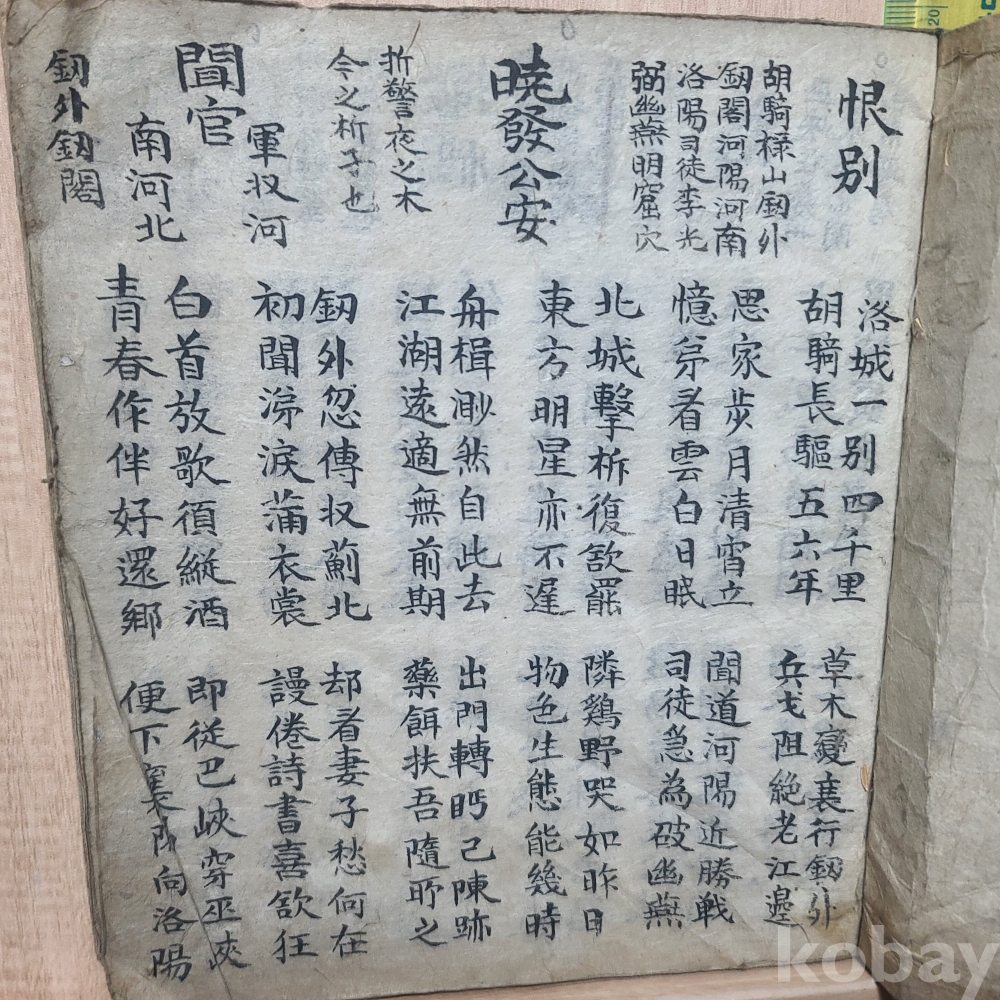 恨别
胡騎祿山釰外
釰閣河陽河南
洛陽司徒李光
弼幽燕明窟穴
洛城一别四千里
胡騎長驅五六年
草木變衰行釰外
兵戈阻絶老江邊
思家步月清宵立
憶弟看雲白日眠
聞道河陽近勝戰
司徒急為破幽燕
曉發公安
柝警夜之木
今之柝子也
北城擊柝復欲罷
東方明星亦不遲
隣鷄野哭如昨日
物色生態能幾時
舟楫渺然自此去
江湖遠適無前期
出門轉眄已陳跡
藥餌扶吾隨所之
聞官
軍収河
南河北
釰外忽傳収薊北
初聞涕淚蒲衣裳
却看妻子愁何在
謾倦詩書喜欲狂
白首放歌須縦酒
青春作伴好還鄉
即從巴峽穿巫峽
便下襄陽向洛陽
釰外釰閣
kobay